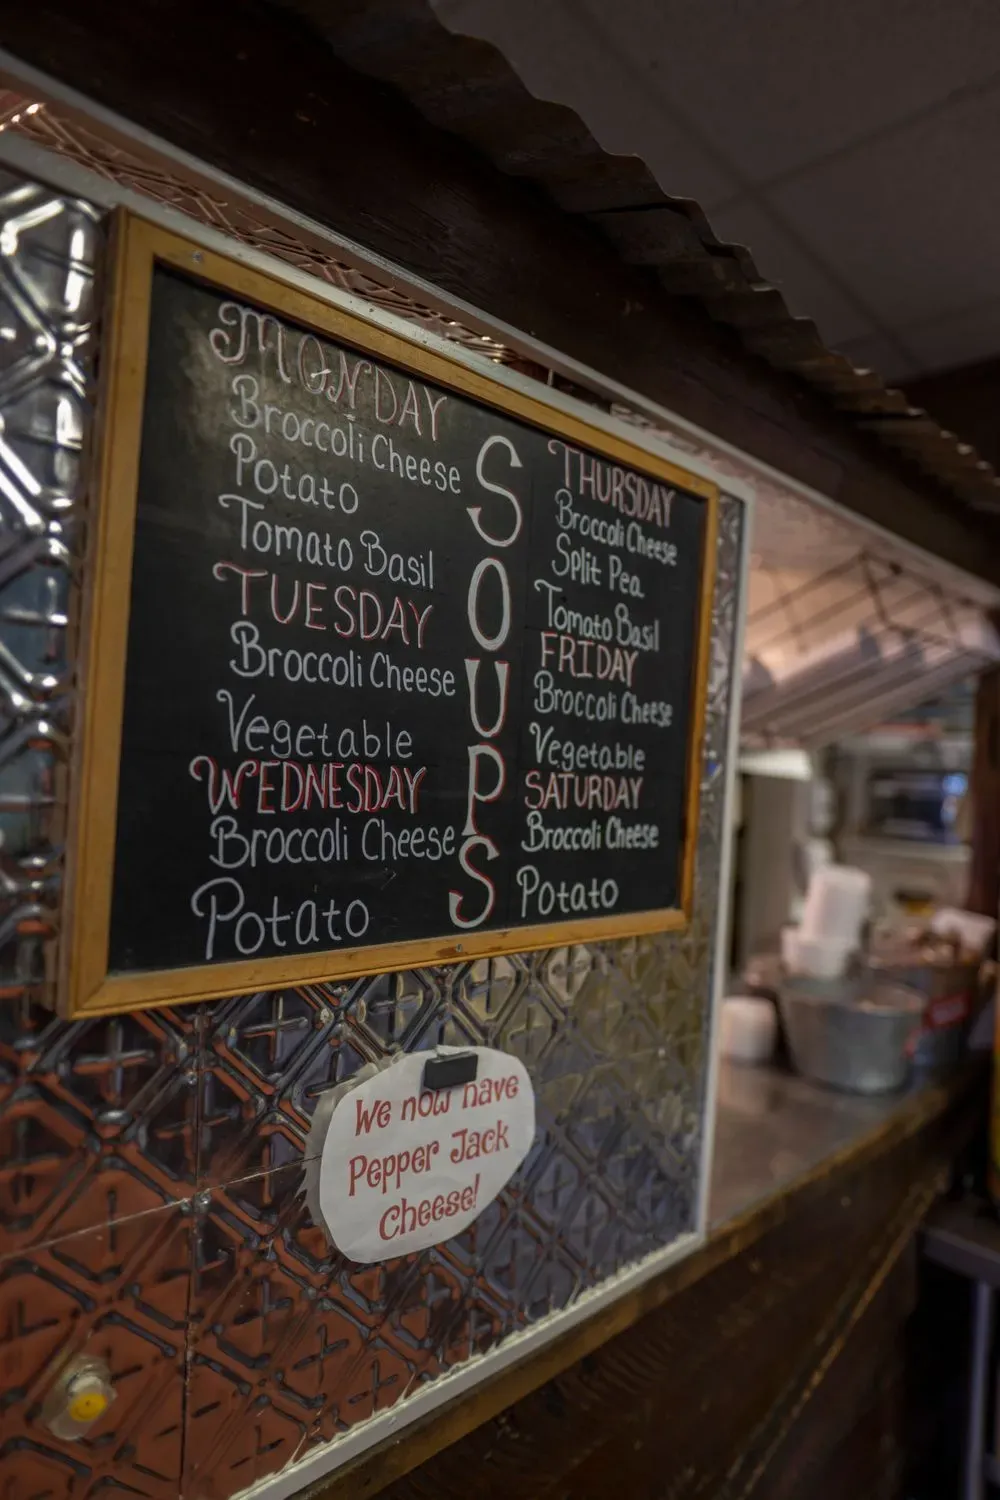 MONDAY
Broccoli Cheese
Potato
Tomato Basil
TUESDAY
Broccoli Cheese
Vegetable
WEDNESDAY
Broccoli Cheese
Potato
SOUPS
THURSDAY
Broccoli Cheese
Split Pea
Tomato Basil
FRIDAY
Broccoli Cheese
Vegetable
SATURDAY
Broccoli Cheese
Potato
We now have
Pepper Jack
Cheese!